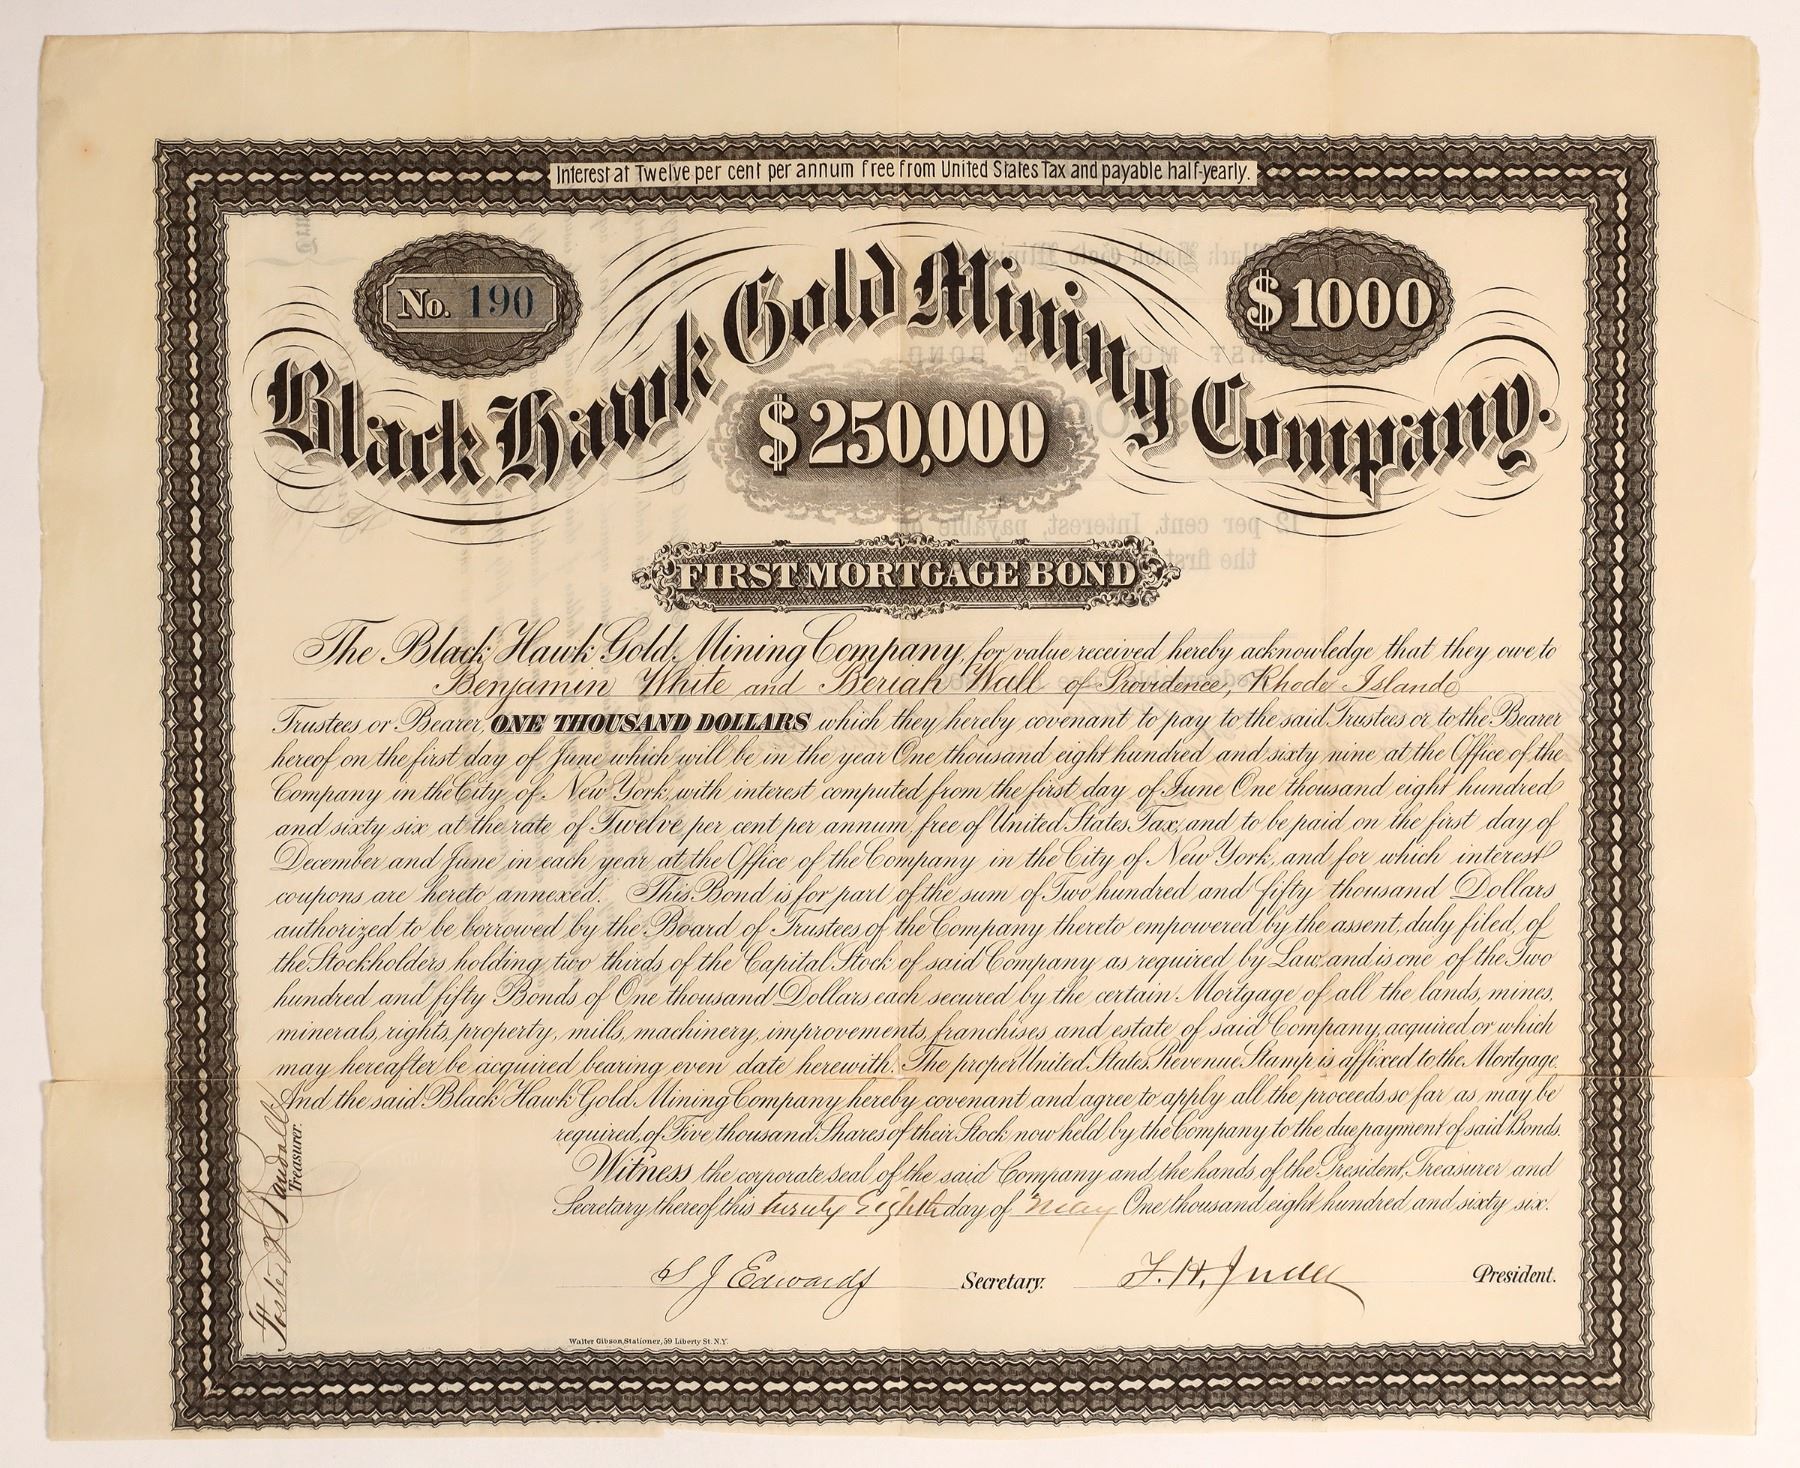 Interest at Twelve per cent per annum free from United States Tax and payable half-yearly.
No. 190
$1000
Black Hawk Gold Mining Company.
$250,000
FIRST MORTGAGE BOND
The Black Hawk Gold Mining Company, for value received hereby acknowledge that they owe to
Benjamin White and Beriah Wall of Providence, Rhode Island
Trustees or Bearer, ONE THOUSAND DOLLARS which they hereby covenant to pay to the said Trustees or to the Bearer
hereof on the first day of June which will be in the year One thousand eight hundred and sixty nine at the Office of the
Company in the City of New York, with interest computed from the first day of June One thousand eight hundred
and sixty six at the rate of Twelve per cent per annum, free of United States Tax, and to be paid on the first day of
December and June in each year at the Office of the Company in the City of New York, and for which interest
coupons are hereto annexed. This Bond is for part of the sum of Two hundred and fifty thousand Dollars
authorized to be borrowed by the Board of Trustees of the Company thereto empowered by the assent, duly filed, of
the Stockholders holding two thirds of the Capital Stock of said Company as required by Law, and is one of the Two
hundred and fifty Bonds of One thousand Dollars each secured by the certain Mortgage of all the lands, mines,
minerals, rights, property, mills, machinery, improvements, franchises and estate of said Company, acquired or which
may hereafter be acquired bearing even date herewith. The proper United States Revenue Stamp is affixed to the Mortgage.
And the said Black Hawk Gold Mining Company hereby covenant and agree to apply all the proceeds so far as may be
required, of Five thousand Shares of their Stock now held by the Company to the due payment of said Bonds.
Witness the corporate seal of the said Company and the hands of the President, Treasurer and
Secretary thereof this twenty Eighth day of May One thousand eight hundred and sixty six.
S J Edwards Secretary. F. H. Judd President.
Treasurer.
Walter Gibson, Stationer, 59 Liberty St. N.Y.